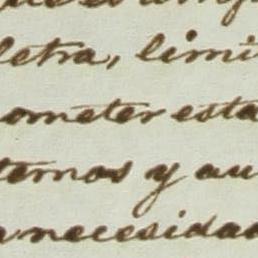 letra, limi
ometer esta
ternos y au
necesidad